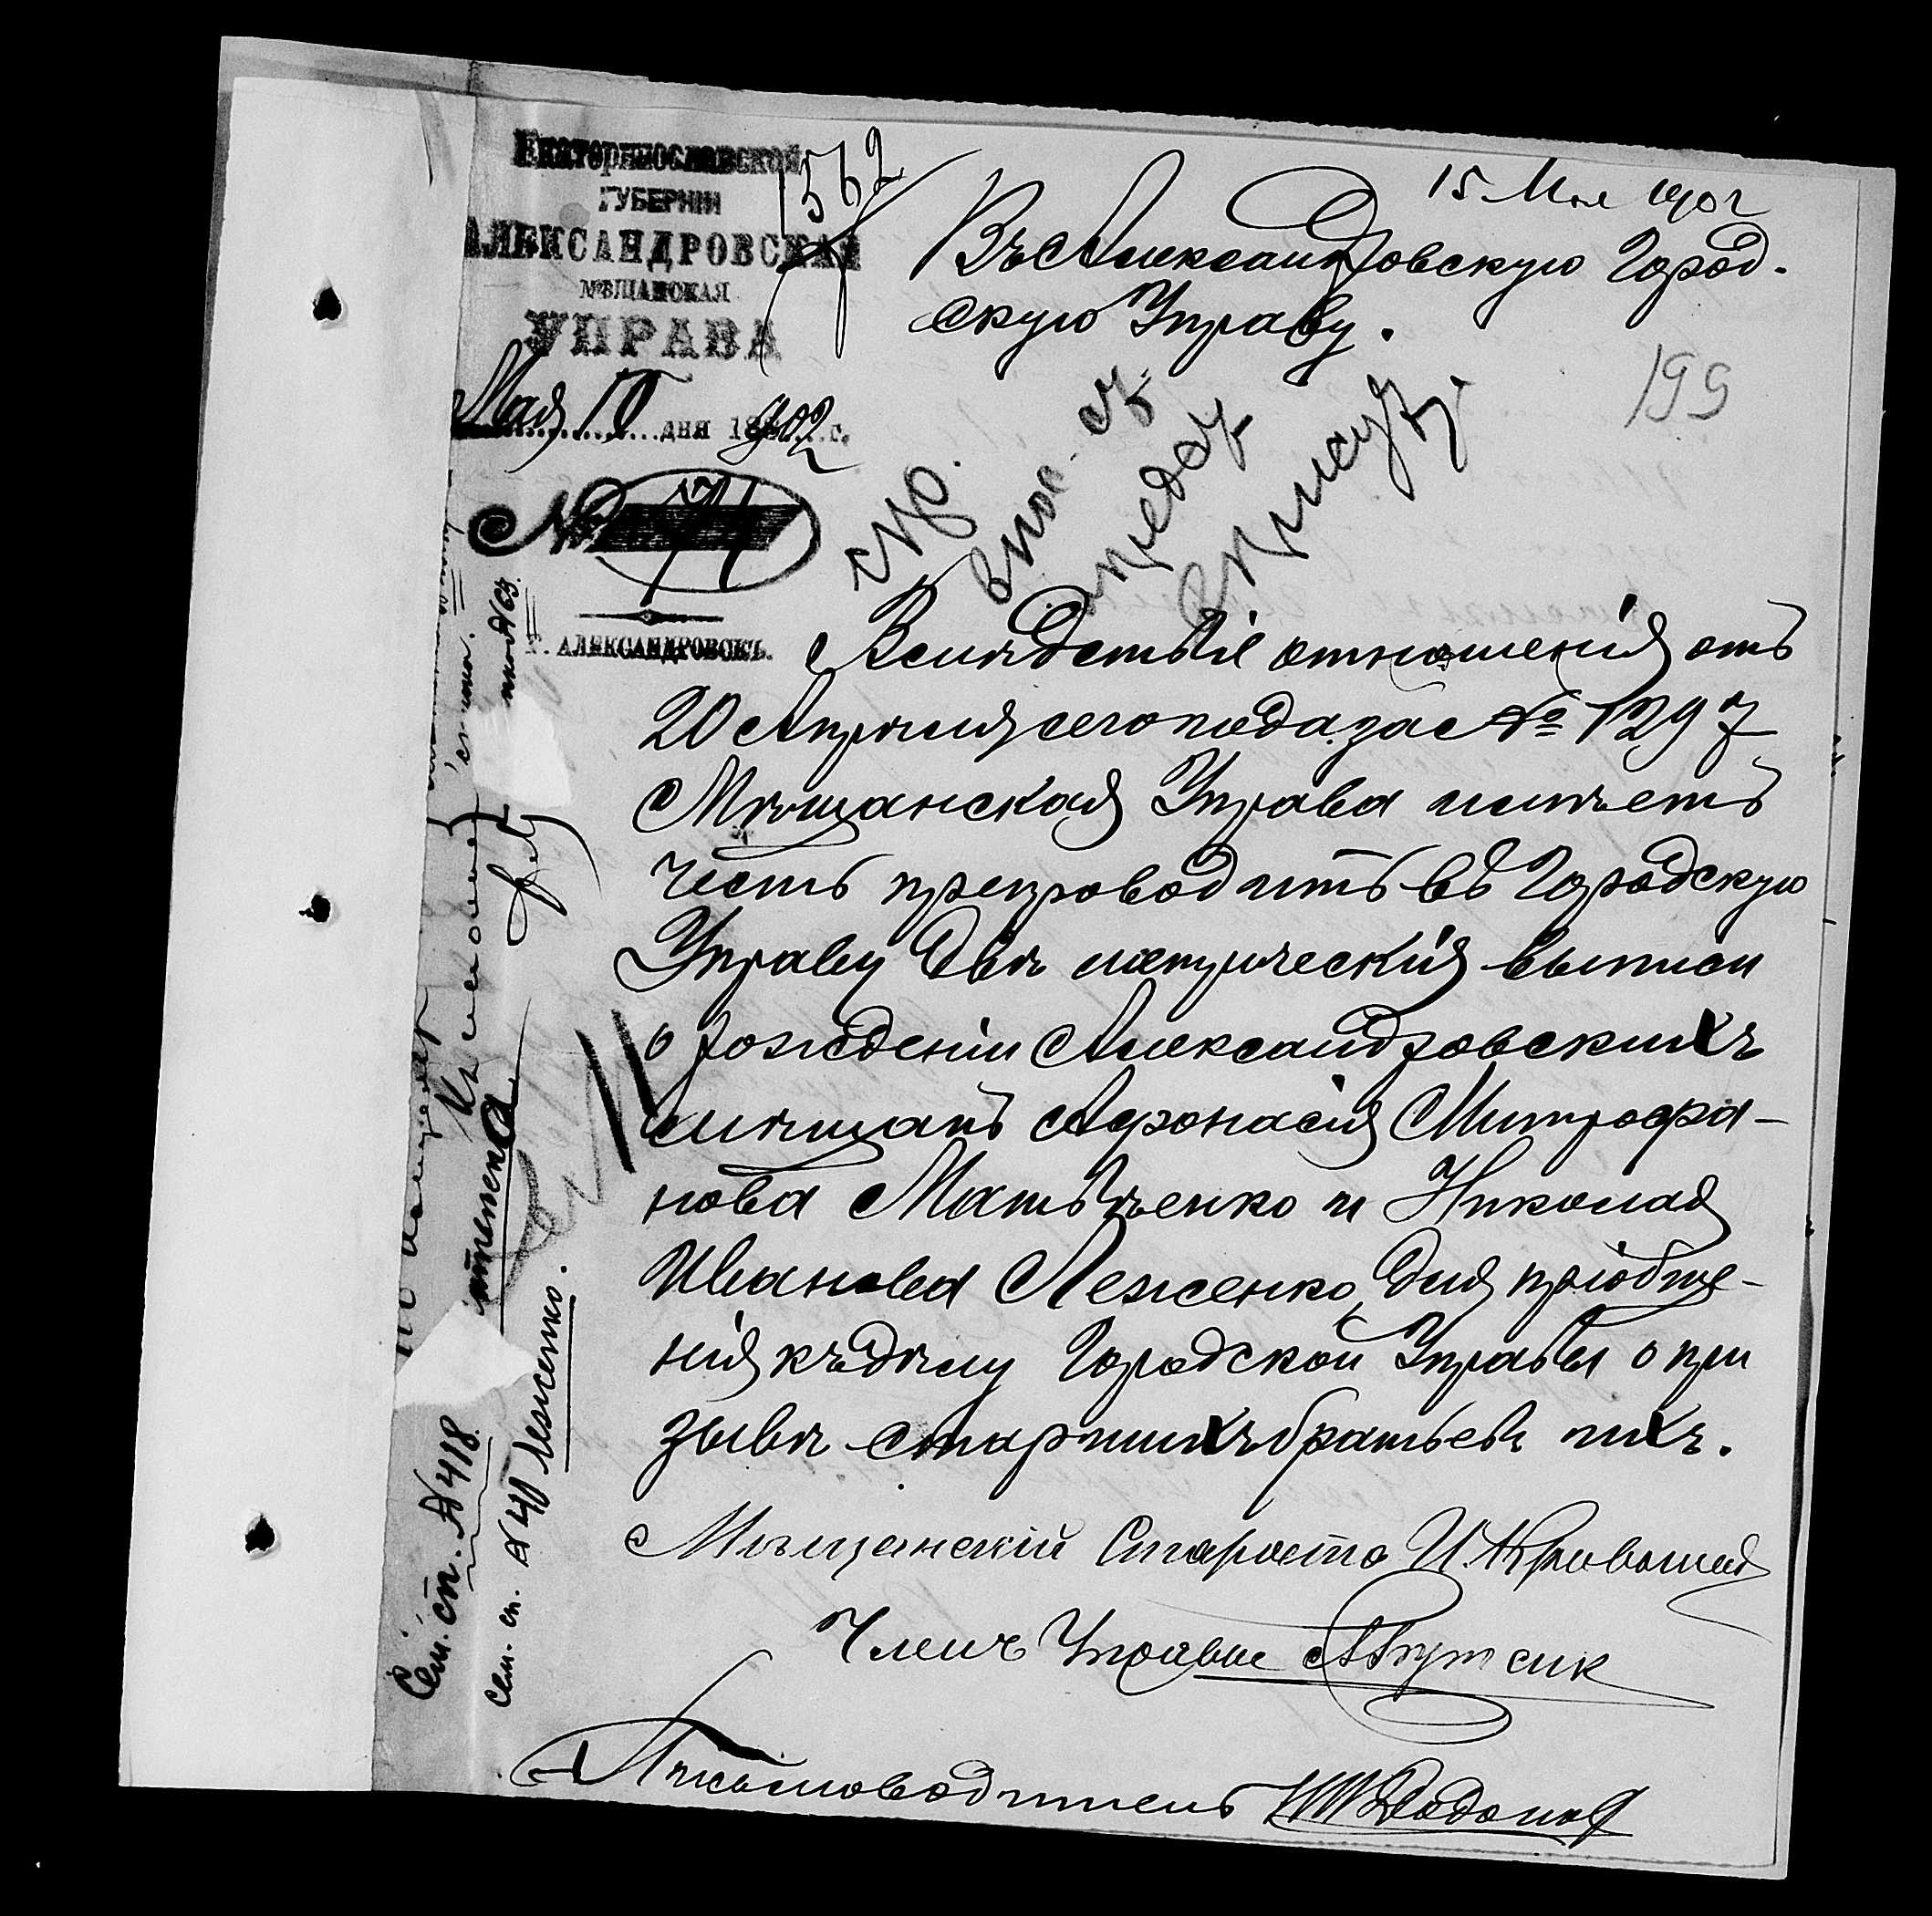 Екатеринославской
ГУБЕРНІИ
АЛЕКСАНДРОВСКАЯ
МѢЩАНСКАЯ
УПРАВА
Мая 10 дня 1902 г.
№ 74
Г. АЛЕКСАНДРОВСКЪ.
1562
15 Мая 1902
Въ Александровскую Город-
скую Управу.
199
Вслѣдствіе отношенія отъ
20 Апрѣля сего года за № 1297
Мѣщанская Управа имѣетъ
честь препроводить въ Городскую
Управу двѣ метрическія выписи
о рожденіи Александровскихъ
мѣщанъ Афонасія Митрофа-
нова Матвѣенко и Николая
Иванова Леженко, для пріобще-
нія къ дѣлу Городской Управы о при
зывѣ старшихъ братьевъ ихъ.
Мѣщанскій Староста И.
Членъ Управы
Письмоводитель
Сем. сп. № 418
Сем. сп. № 411 Леженко.